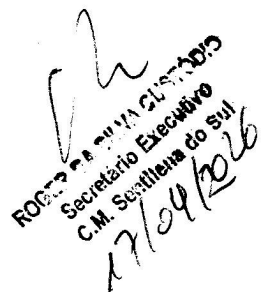 ROGER DA SILVA CUSTÓDIO
Secretário Executivo
C.M. Sentinela do Sul
17/04/2026